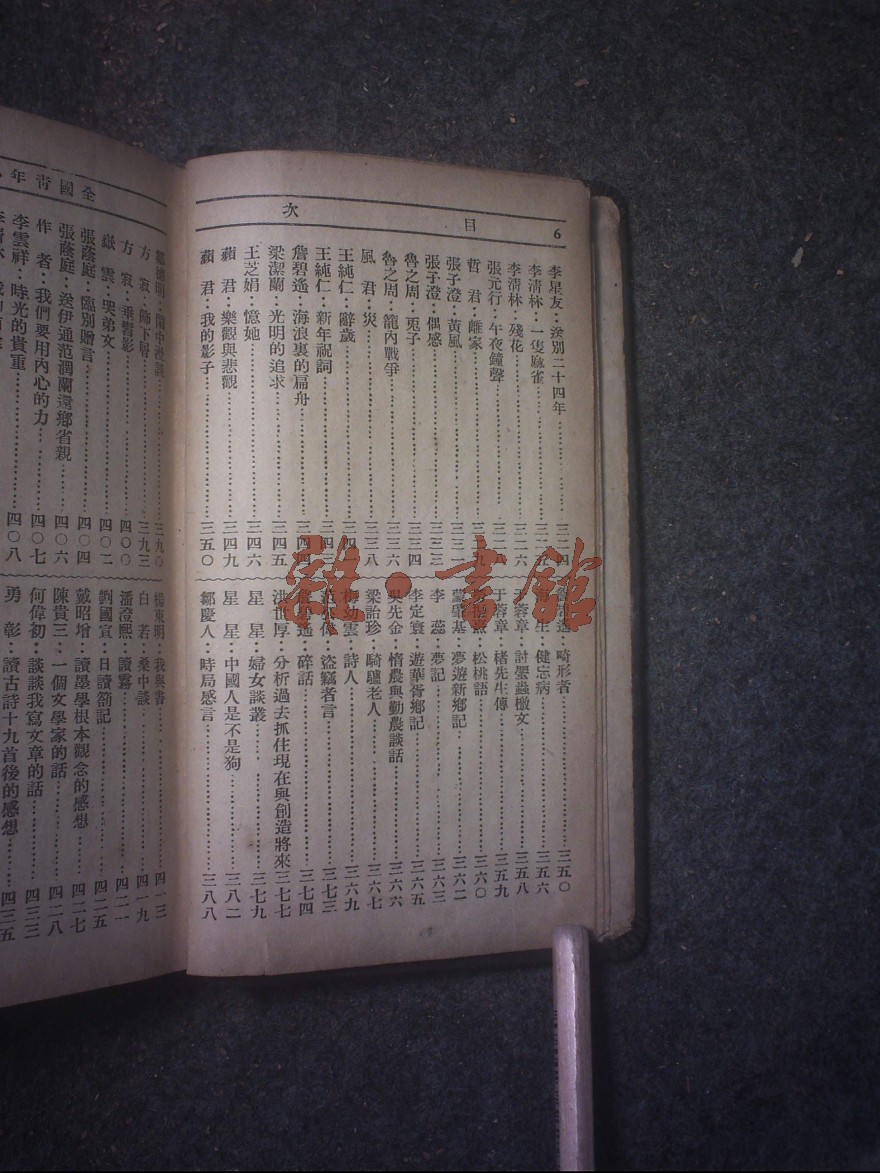 目次
6
李星友：送別二十四年……三二四
李清林：一隻麻雀……三二五
李清林：殘花……三二六
張元行：午夜鐘聲……三二八
哲君：雌家……三二九
張子澄：黃風……三三二
張子澄：偶感……三三三
魯之周：兎子……三三四
魯之周：籠內戰爭……三三六
風君：災……三三八
王純仁：辭歲……三四一
王純仁：新年祝詞……三四三
詹碧遙：海浪裏的扁舟……三四四
梁潔蘭：光明的追求……三四五
王芝娟：憶她……三四六
蘋君：樂觀與悲觀……三四九
蘋君：我的影子……三五〇
畸形者……三五〇
生：健忘病……三五六
蓉章：討螢蟲檄文……三五八
于蓉章：楮先生傳……三五九
松桃語……三六〇
基：夢遊新鄉記……三六二
李蕊：夢記……三六三
李定寰：遊華胥鄉記……三六五
吳先金：惰農與勤農談話……三六六
梁詒珍：騎驢老人……三六七
梅幼雲：詩人……三六九
盜竊者言……三七三
詹碧遙：碎話……三七四
洪世厚：分析過去抓住現在與創造將來……三七七
星星：婦女談叢……三七九
星星：中國人是不是狗……三八二
鄒慶八：時局感言……三八八
全國青年
閒中漫談……三九〇
方寂：簷下屑……三九三
方寂：垂鬢影……四〇〇
嶽雲：哭弟文……四〇二
張蔭庭：臨別贈言……四〇四
張蔭庭：送伊通范潤蘭還鄉省親……四〇六
作者：我們要用內心的力……四〇七
李雲祥：時光的貴重……四〇八
楊東明：我與書……四一三
白若：桑中談……四一九
潘澄熙：讀霧……四二一
劉國宣：日讀劄記……四二五
戴昭增：讀墨學根本觀念的感想……四二七
陳貴三：一個文學家的話……四二八
何偉初：談談我寫文章的話……四三三
勇彰：讀古詩十九首後的感想……四三五
雜·書館